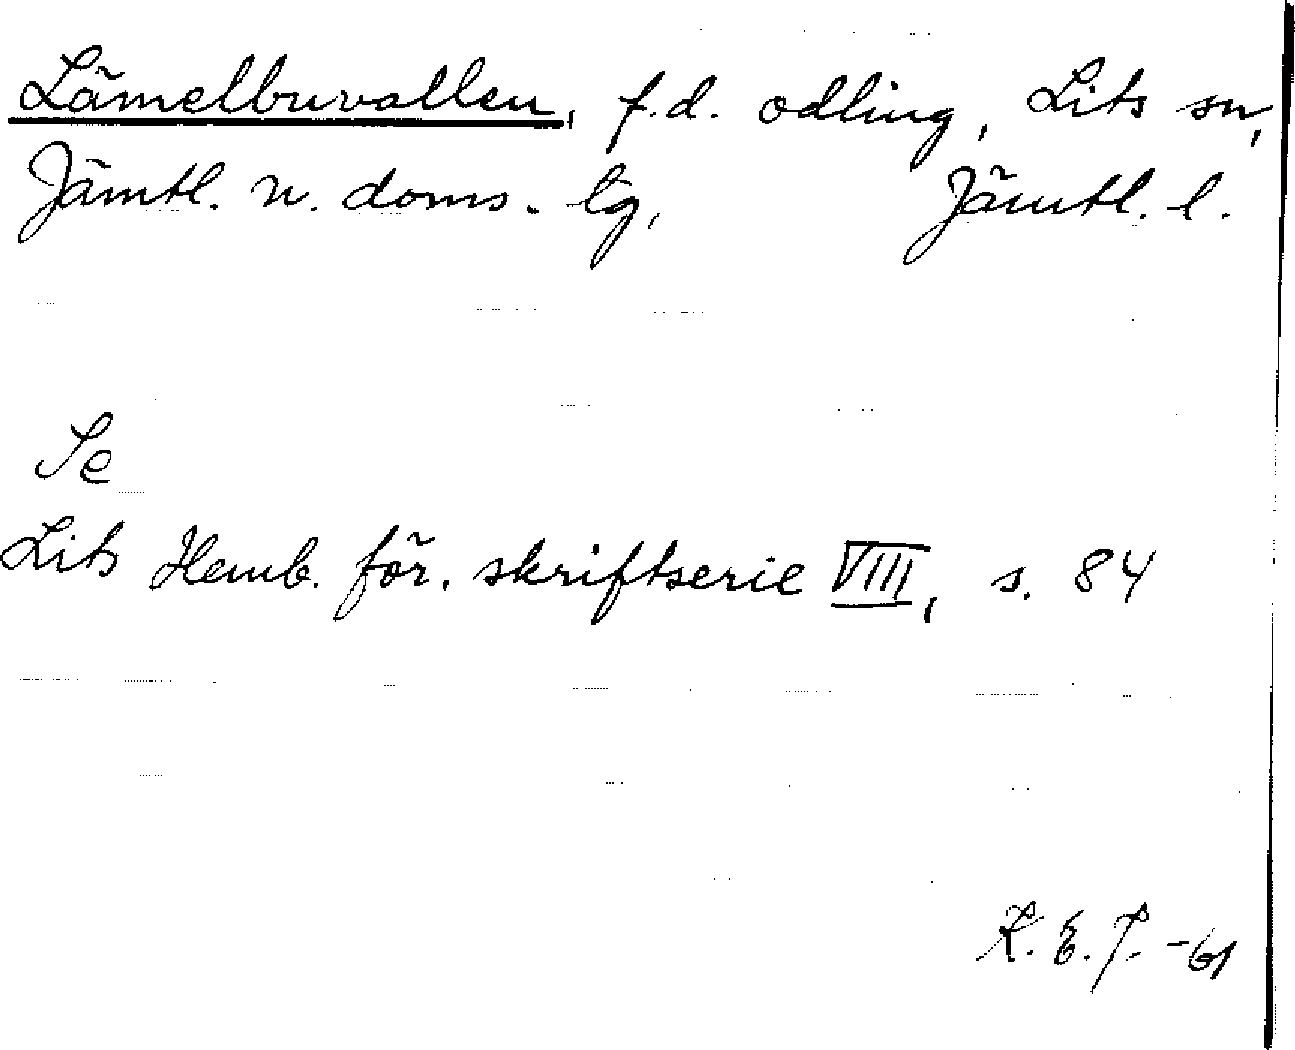 Lämelbuvallen, f.d. odling, Lits sn,
Jämtl. n. doms. lg, Jämtl. l.
Se
Lits Hemb. för. skriftserie VIII, s. 84
K. E. P. -61